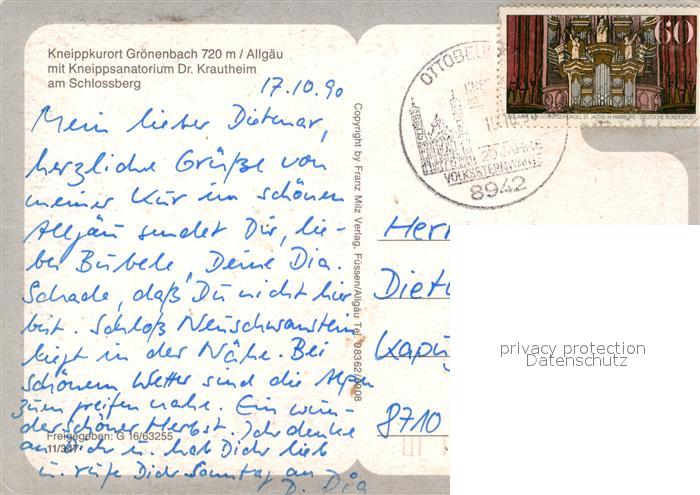 Kneippkurort Grönenbach 720 m / Allgäu
mit Kneippsanatorium Dr. Krautheim
am Schlossberg
17.10.90
Mein lieber Dietmar,
herzliche Grüße von
meiner Kur im schönen
Allgäu sendet Dir, lie-
be Deine Dia.
Schade, daß Du nicht hier
bist. Schloß Neuschwanstein
liegt in der Nähe. Bei
schönem Wetter sind die Alpen
zum greifen nahe. Ein wun-
derschöner Herbst. Ich denke
an Dich u. hab Dich lieb
u. rufe Dich Sonntag an
D. Dia
Freigegeben: G 16/63255
11/
Copyright by Franz Milz Verlag, Füssen/Allgäu Tel. 08362/
OTTOBEU
25 JAHRE
VOLKSSTERNWARTE
8942
60
ORGEL ST. JACOBI IN HAMBURG · DEUTSCHE BUNDESPOST
Herr
Diet
Kapu
8710
privacy protection
Datenschutz